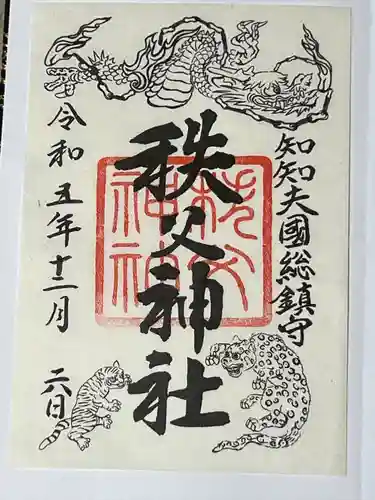 知知夫國総鎮守
秩父神社
秩父
神社
令和五年十二月 六日